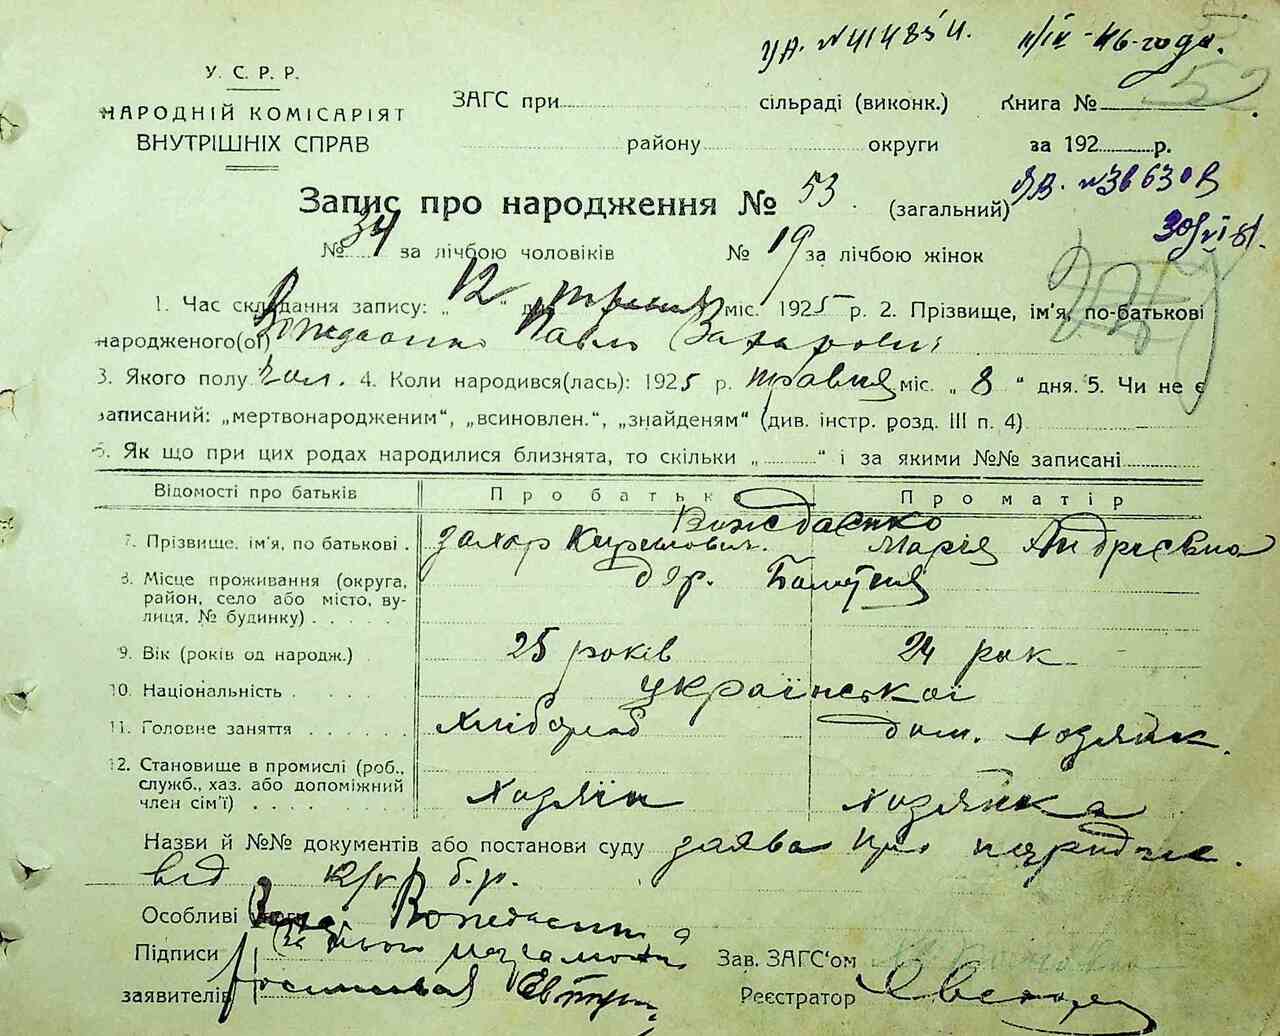 УА. №414854. 11/IX-46-года.
52
У. С. Р. Р.
НАРОДНІЙ КОМІСАРІЯТ
ВНУТРІШНІХ СПРАВ
ЗАГС при сільраді (виконк.) Книга №
району округи за 192 р.
Запис про народження № 53. (загальний)
30/VI 81.
№ 34 за лічбою чоловіків № 19 за лічбою жінок
1. Час складання запису: „ 12 “ дня травня міс. 1925 р. 2. Прізвище, ім'я, по-батькові
народженого(ої) Вождаєнко Павло Захарович
3. Якого полу чол. 4. Коли народився(лась): 1925 р. травня міс. „ 8 “ дня. 5. Чи не є
записаний: „мертвонародженим“, „всиновлен.“, „знайденям“ (див. інстр. розд. III п. 4)
6. Як що при цих родах народилися близнята, то скільки „ “ і за якими №№ записані
Відомості про батьків Про батька Про матір
Вождаєнко
7. Прізвище, ім'я, по батькові . Захар Кирилович. Марія Андрієвна
8. Місце проживання (округа,
район, село або місто, ву-
лиця, № будинку) . . . . . дер.
9. Вік (років од народж.) 25 років 24 рок
10. Національність . . . . . української
11. Головне заняття . . . . . Хлібороб дом. хозяйк.
12. Становище в промислі (роб.,
служб., хаз. або допоміжний
член сім'ї) . . . . . хозяїн хозяйка
Назви й №№ документів або постанови суду заява про народже.
від 12/V б.р.
Особливі уваги
Підписи за нього неграмотн
заявителів Євтуш
Зав. ЗАГС'ом
Реєстратор